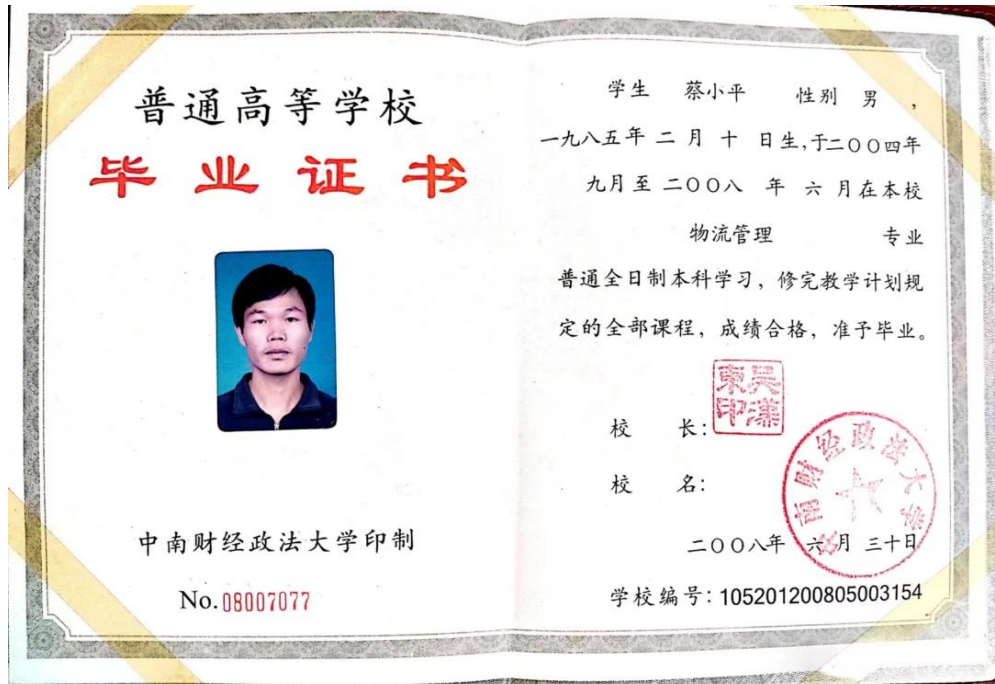 普通高等学校
毕业证书
中南财经政法大学印制
No.08007077
学生 蔡小平 性别 男，
一九八五年 二 月 十 日生,于二〇〇四年
九月至 二〇〇八 年 六 月在本校
物流管理 专业
普通全日制本科学习，修完教学计划规
定的全部课程，成绩合格，准予毕业。
校 长:
吴汉東印
校 名:
中南财经政法大学
二〇〇八年 六月 三十日
学校编号: 105201200805003154